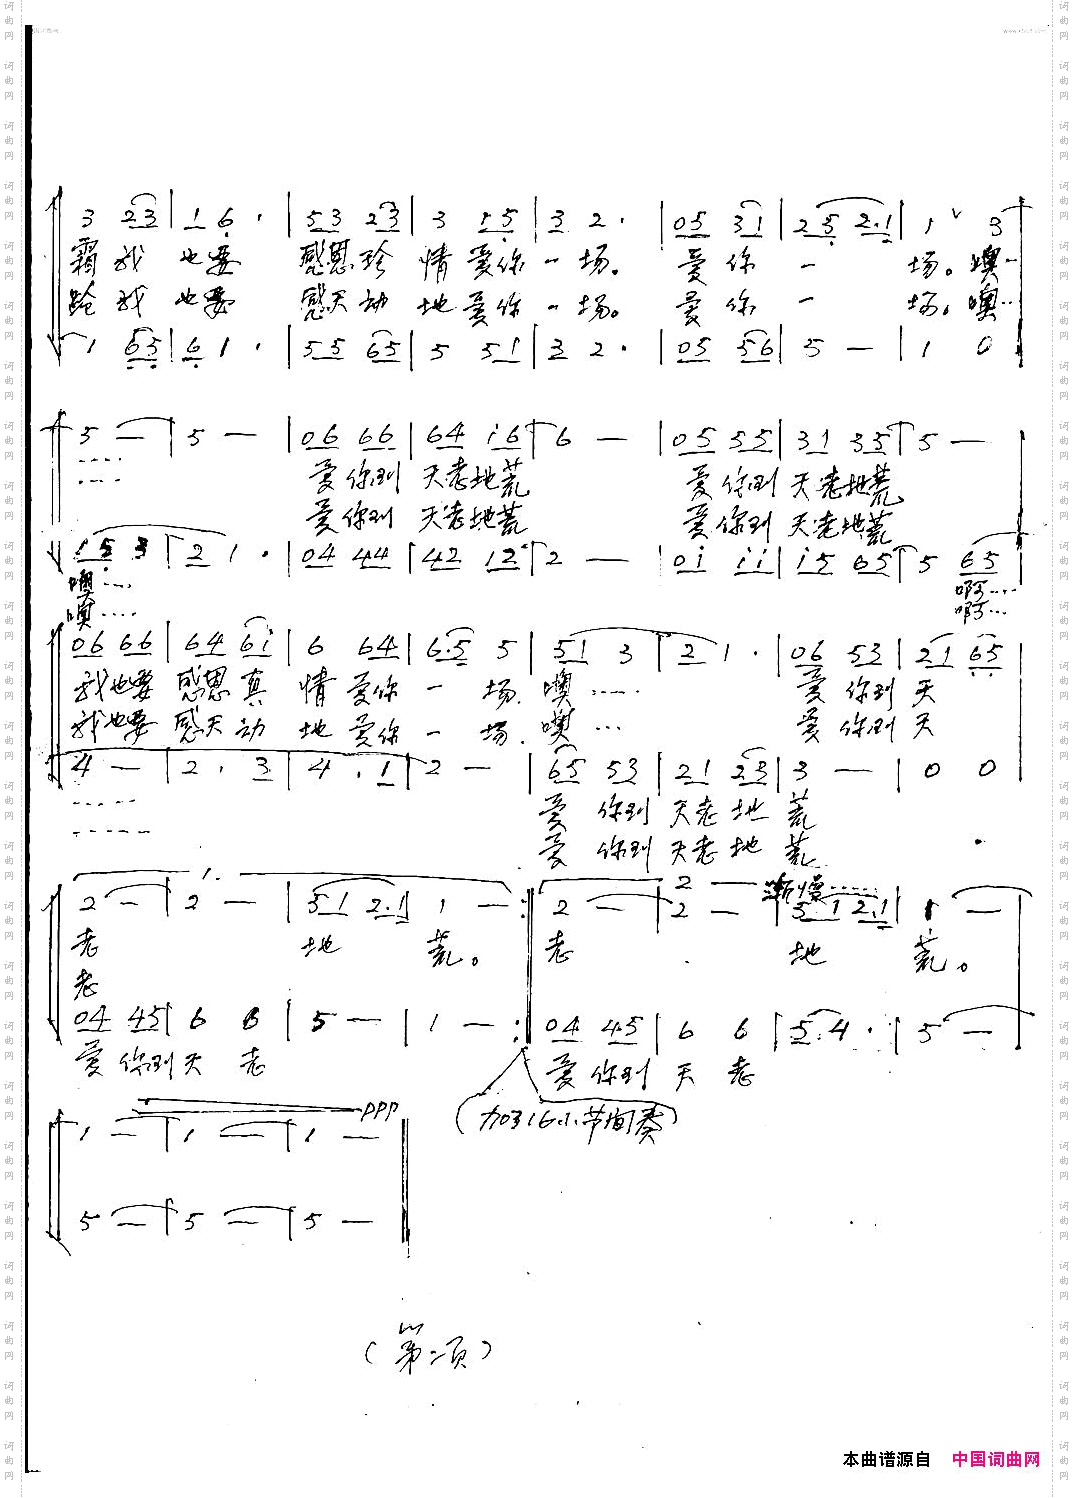 3 23 | 1 6 · | 53 23 | 3 15 | 3 2 · | 05 31 | 25 2·1 | 1 ˅ 3
霜我 也要 感恩珍 情 爱你 一 场。 爱 你 一 场。噢…
跄我 也要 感天动 地 爱你 一 场。 爱 你 一 场。噢…
1 65 | 6 1 · | 55 65 | 5 51 | 3 2 · | 05 56 | 5 — | 1 0
5 — | 5 — | 06 66 | 64 i6 | 6 — | 05 55 | 31 35 | 5 —
爱你到 天老地荒 爱你到 天老地荒
爱你到 天老地荒 爱你到 天老地荒
15 3 | 2 1 · | 04 44 | 42 12 | 2 — | 0i ii | i5 65 | 5 65
噢…… 啊……
噢…… 啊…
06 66 | 64 6i | 6 64 | 6·5 5 | 51 3 | 2 1 · | 06 53 | 21 65
我也要 感恩真 情 爱你 一 场. 噢…… 爱 你到 天
我也要 感天动 地 爱你 一 场. 噢…… 爱 你到 天
4 — | 2 · 3 | 4 · 1 | 2 — | 65 53 | 21 23 | 3 — | 0 0
爱 你到 天老 地 荒
爱 你到 天老 地 荒
1. 2 — 渐慢……
2 — | 2 — | 31 2·1 | 1 — :‖ 2 — | 2 — | 31 2·1 | 1 —
老 地 荒。 老 地 荒。
老
04 45 | 6 6 | 5 — | 1 — :‖ 04 45 | 6 6 | 5·4 · | 5 —
爱 你到 天 老 爱 你到 天 老
(加0316小节间奏)
ppp
1 — | 1 — | 1 — ‖
5 — | 5 — | 5 — ‖
(第二页)
本曲谱源自 中国词曲网